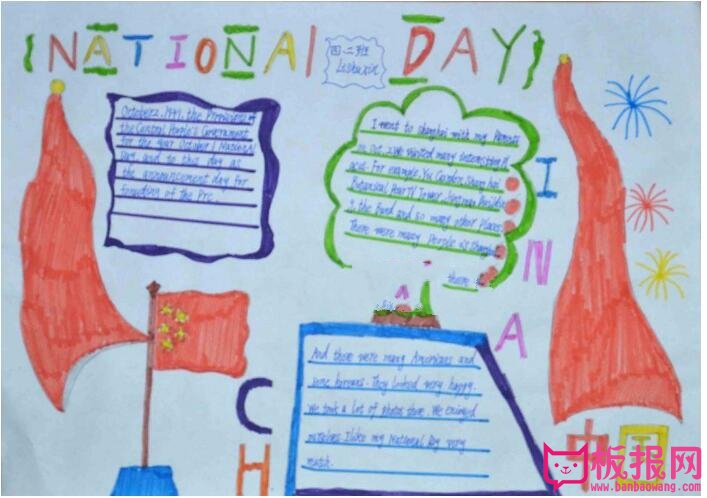 NATIONAL DAY
四.二班
Lishuxin
October 2, 1949, the
the Central People's Government
for the year October 1 National
Day, and to this day as
the announcement day for
founding of the Prc.
I went to Shanghai with my Parents
on Oct. many interesting
For example, Yu Garden Shanghai
Botanical, Pear TV Tower,
the Bund and so many other Places.
There were many People in Shanghai
there
And there were many Americans and
some They looked very happy.
We took a lot of photos there. We enjoyed
I like my National Day very
match.
C
H
I
N
A
中国
板报网
www.banbaowang.com